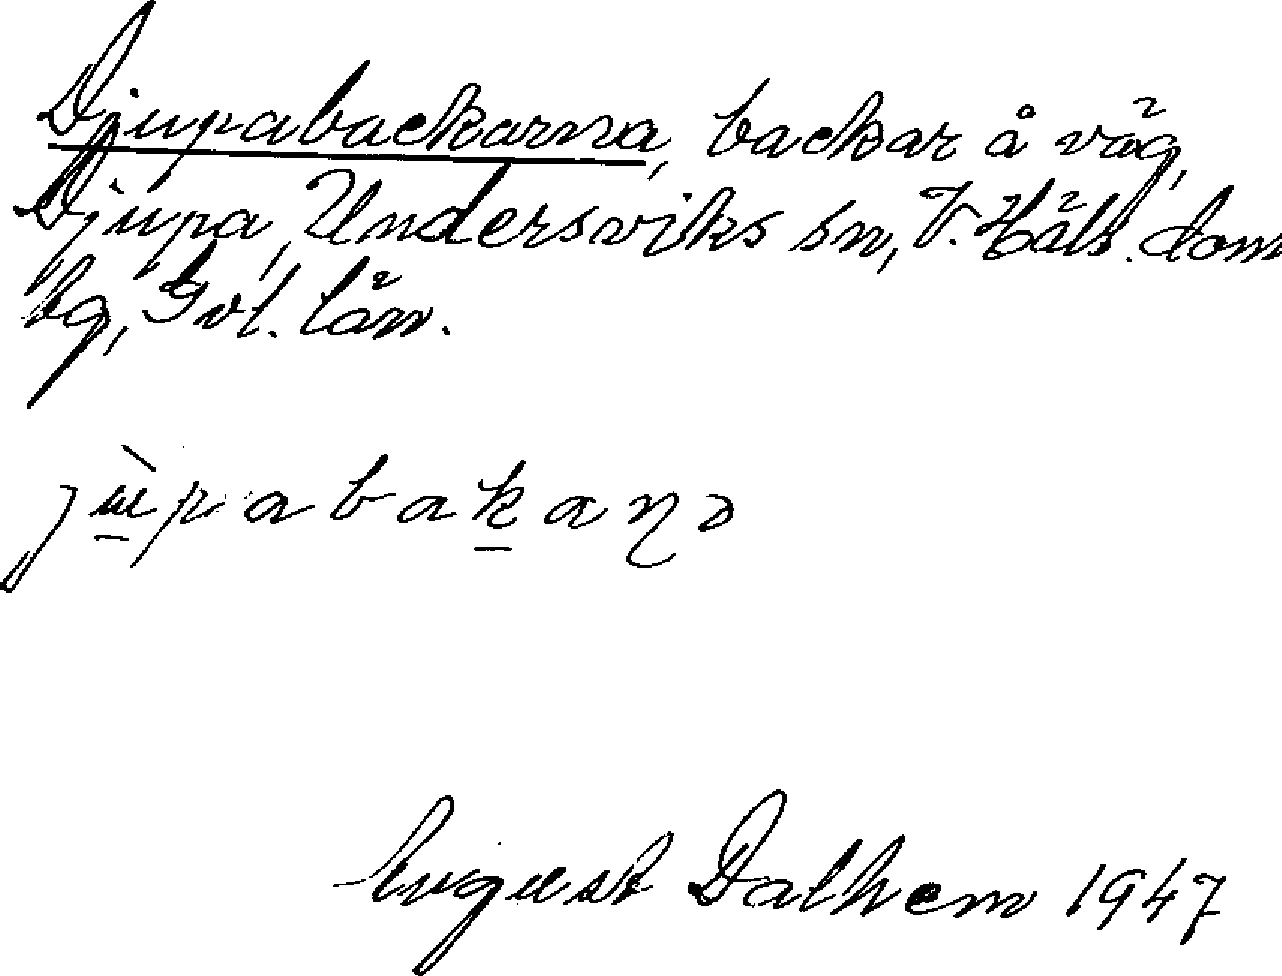 Djupabackarna, backar å väg,
Djupa, Undersviks sn, V. Häls. dom
sg, Gvl. län.
jùpabakaṇə
August Dalhem 1947